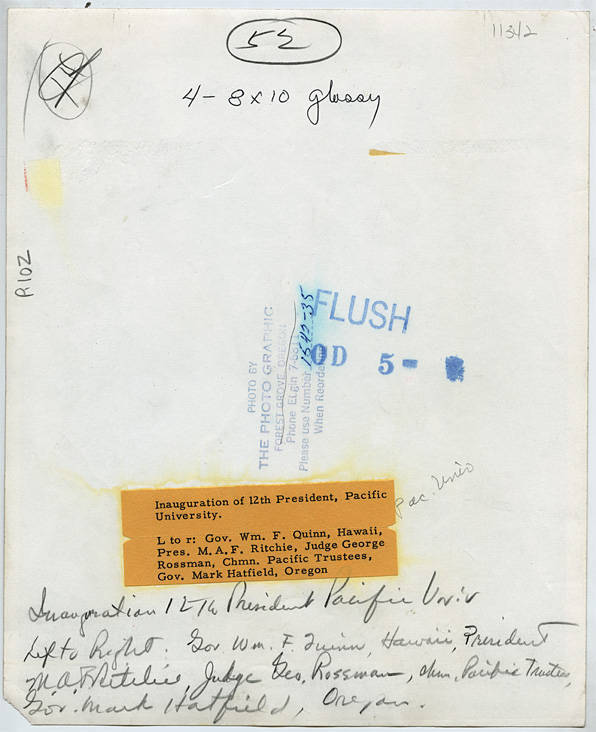 52
11342
4 - 8x10 glossy
R102
PHOTO BY
THE PHOTO GRAPHIC
FOREST GROVE, OREGON
Phone ELgin 7-
Please use Number 1542-35
When Reorde
FLUSH
OD 5-
Pac. Univ
Inauguration of 12th President, Pacific
University.
L to r: Gov. Wm. F. Quinn, Hawaii,
Pres. M.A.F. Ritchie, Judge George
Rossman, Chmn. Pacific Trustees,
Gov. Mark Hatfield, Oregon
Inauguration 12th President Pacific Univ
Left to Right: Gov. Wm. F. Quinn, Hawaii, President
M.A.F. Ritchie, Judge Geo. Rossman, chm. Pacific Trustees,
Gov. Mark Hatfield, Oregon.